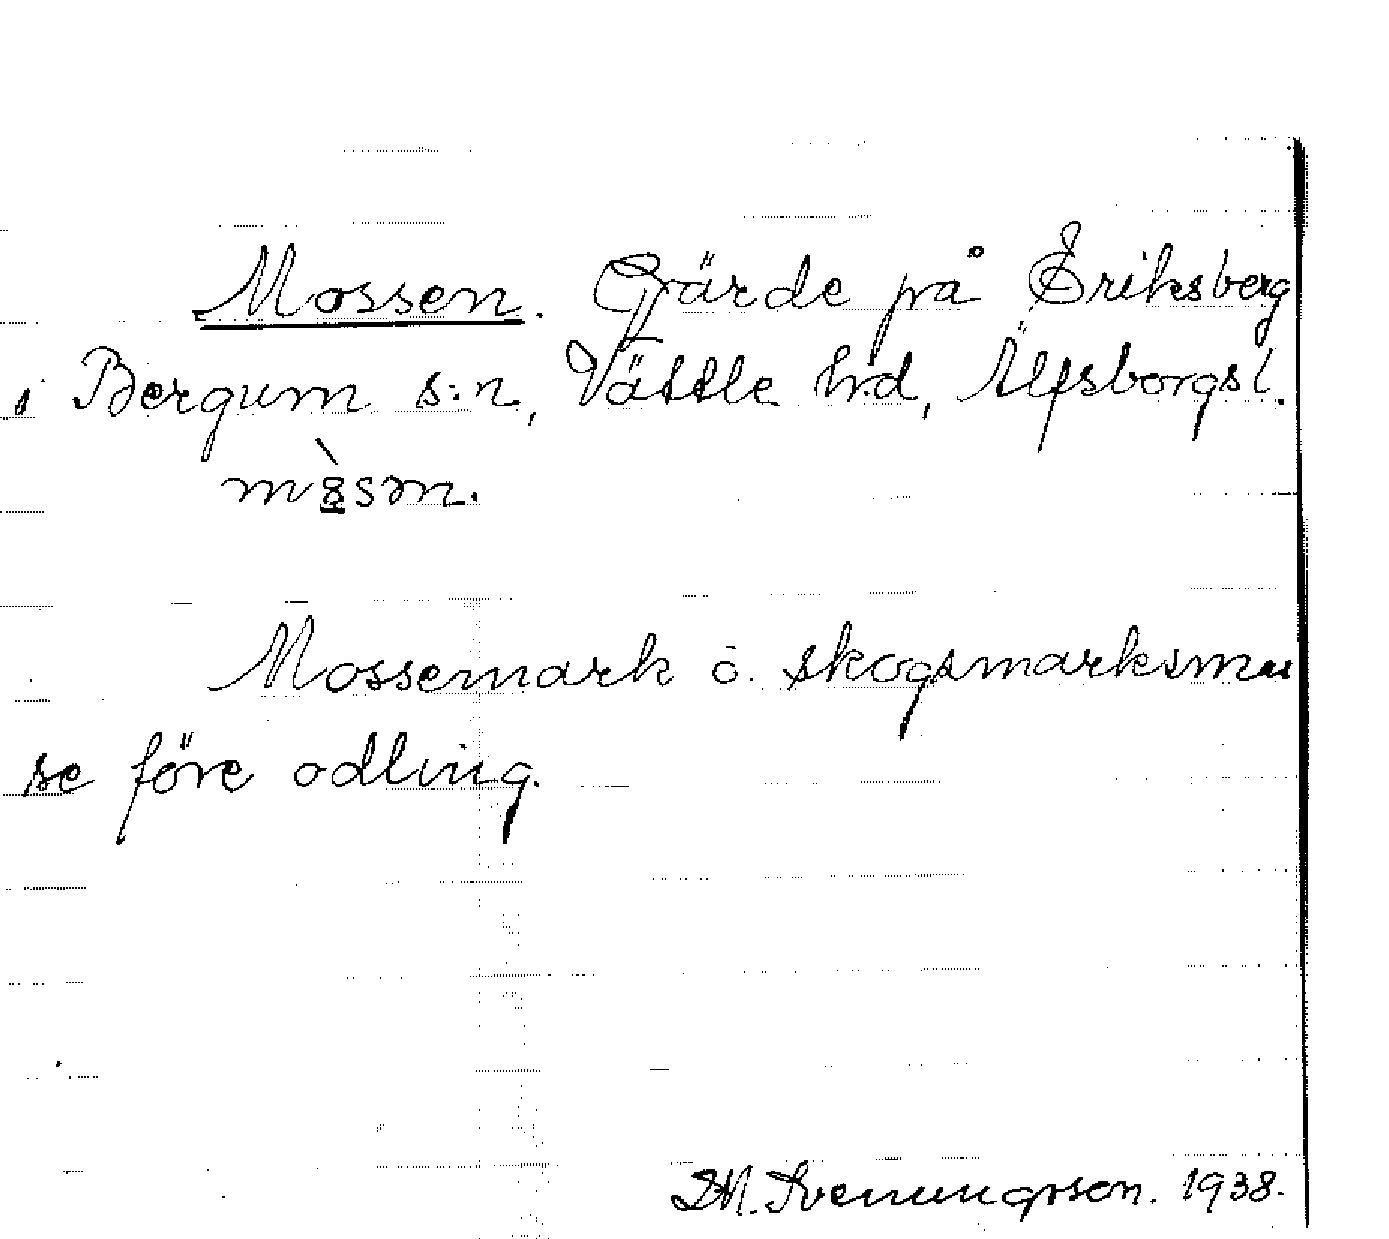 Mossen. Gärde på Eriksberg
i Bergum s:n, Vättle hd, Älfsborgs l.
Mossemark o. skogsmarksmos
se före odling.
D.M. Svenungsson. 1938.